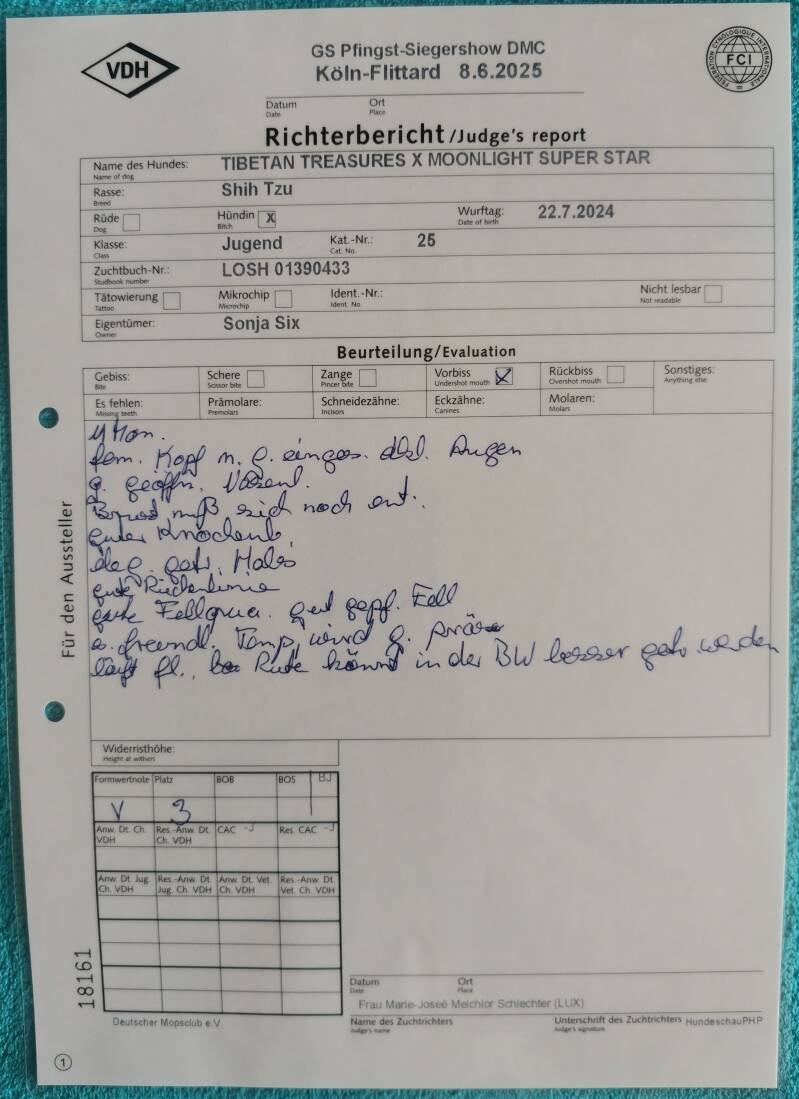 VDH
GS Pfingst-Siegershow DMC
Köln-Flittard 8.6.2025
FEDERATION CYNOLOGIQUE INTERNATIONALE
FCI
Datum Ort
Date Place
Richterbericht/Judge's report
Name des Hundes: TIBETAN TREASURES X MOONLIGHT SUPER STAR
Name of dog
Rasse: Shih Tzu
Breed
Rüde Hündin X Wurftag: 22.7.2024
Dog Bitch Date of birth
Klasse: Jugend Kat.-Nr.: 25
Class Cat. No.
Zuchtbuch-Nr.: LOSH 01390433
Studbook number
Tätowierung Mikrochip Ident.-Nr.: Nicht lesbar
Tattoo Microchip Ident. No. Not readable
Eigentümer: Sonja Six
Owner
Beurteilung/Evaluation
Gebiss: Schere Zange Vorbiss X Rückbiss Sonstiges:
Bite Scissor bite Pincer bite Undershot mouth Overshot mouth Anything else
Es fehlen: Prämolare: Schneidezähne: Eckzähne: Molaren:
Missing teeth Premolars Incisors Canines Molars
Mon.
fem. Kopf m. g. einges. dkl. Augen
g. geöffn. Nasenl.
Brust muß sich noch ent.
guter Knochenb.
getr. Hals
gute Rückenlinie
gute gut gepf. Fell
freundl. Temp. wird g. präs
läuft fl., Rute könnt in der BW besser getr werden
Für den Aussteller
Widerristhöhe:
Height at withers
Formwertnote Platz BOB BOS BJ
V 3
Anw. Dt. Ch. VDH Res.-Anw. Dt. Ch. VDH CAC -J Res. CAC -J
Anw. Dt. Jug. Ch. VDH Res.-Anw. Dt. Jug. Ch. VDH Anw. Dt. Vet. Ch. VDH Res.-Anw. Dt. Vet. Ch. VDH
18161
Datum Ort
Date Place
Frau Marie-Joseé Melchior Schlechter (LUX)
Deutscher Mopsclub e.V.
Name des Zuchtrichters Unterschrift des Zuchtrichters HundeschauPHP
Judge's name Judge's signature
1